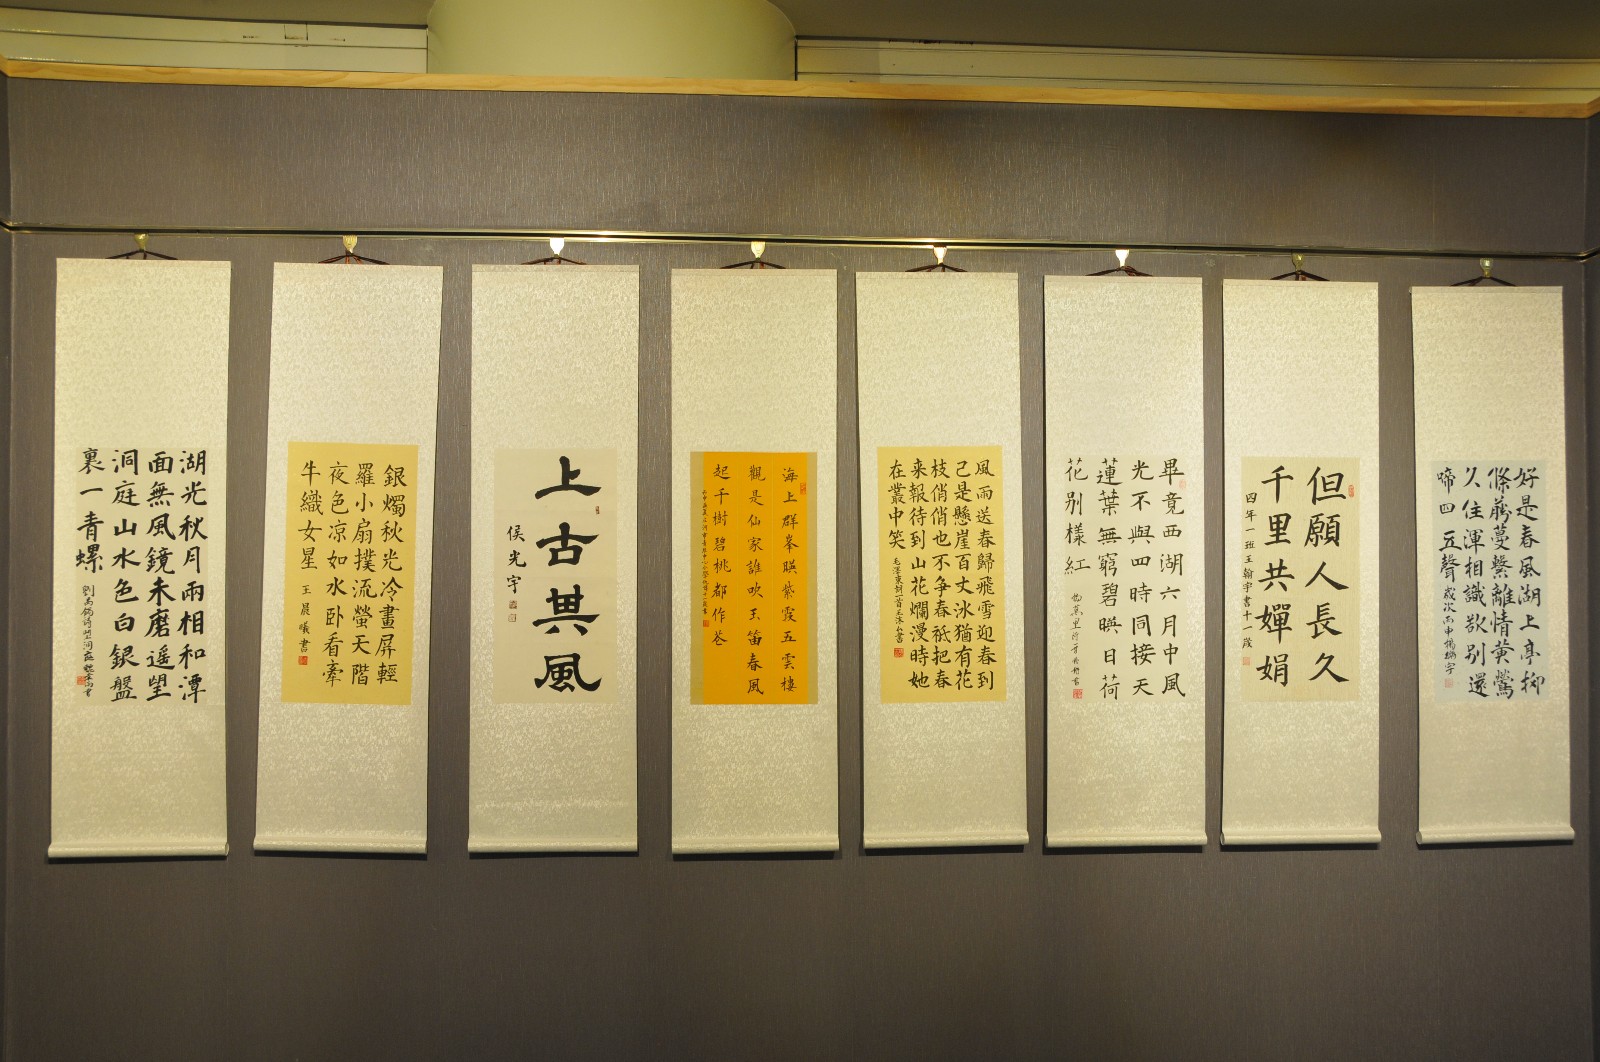 好是春風湖上亭柳
條藤蔓繫離情黄鶯
久住渾相識欲别還
啼四五聲
歲次丙申楊
但願人長久
千里共嬋娟
四年一班王翰宇書十一歲
畢竟西湖六月中風
光不與四時同接天
蓮葉無窮碧暎日荷
花别樣紅
風雨送春歸飛雪迎春到
已是懸崖百丈冰猶有花
枝俏俏也不争春祇把春
来報待到山花爛漫時她
在叢中笑
毛澤東詞一首
海上群峯暎紫霞五雲樓
觀是仙家誰吹玉笛春風
起千樹碧桃都作花
上古其風
侯光宇
銀燭秋光冷畫屏輕
羅小扇撲流螢天階
夜色凉如水卧看牽
牛織女星
王晨曦書
湖光秋月兩相和潭
面無風鏡未磨遥望
洞庭山水色白銀盤
裏一青螺
劉禹錫詩望洞庭